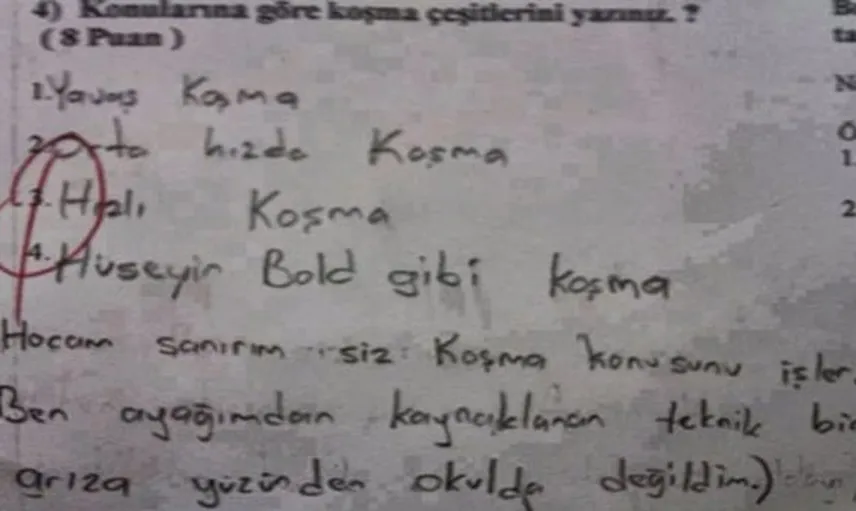 4) Konularına göre koşma çeşitlerini yazınız. ?
( 8 Puan )
1. Yavaş Koşma
2. Orta hızda Koşma
3. Hızlı Koşma
4. Hüseyin Bold gibi koşma
Hocam sanırım siz Koşma konusunu işler
Ben ayağımdan kaynaklanan teknik bir
arıza yüzünden okulda değildim.)
Be
ta
N
Ö
1.
2